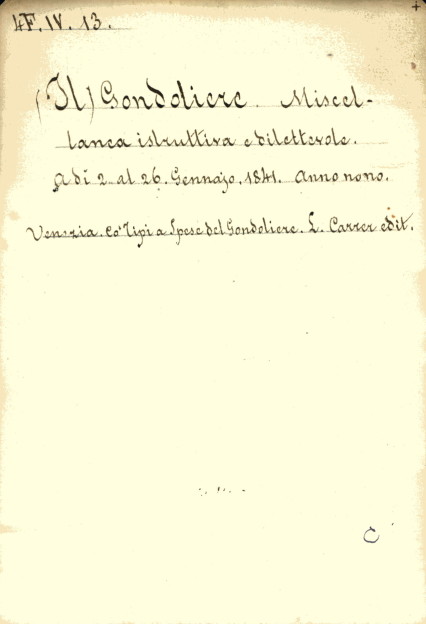 4F. IV. 13.
(Il) Gondoliere. Miscel-
lanea istruttiva e dilettevole.
Adì 2 al 26. Gennajo. 1841. Anno nono.
Venezia. co' Tipi a Spese del Gondoliere. L. Carrer edit.
C